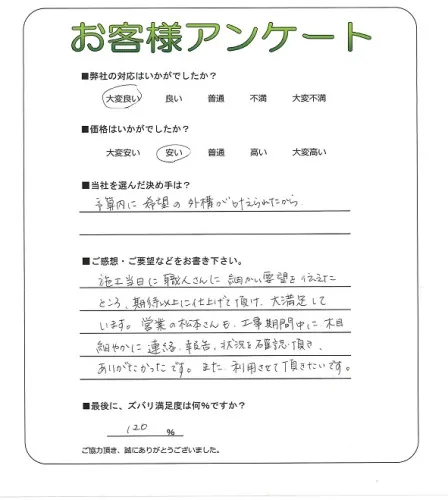 お客様アンケート
■弊社の対応はいかがでしたか?
大変良い 良い 普通 不満 大変不満
■価格はいかがでしたか?
大変安い 安い 普通 高い 大変高い
■当社を選んだ決め手は?
予算内に希望の外構が叶えられたから
■ご感想・ご要望などをお書き下さい。
施工当日に職人さんに細かい要望を伝えた
ところ、期待以上に仕上げて頂け、大満足して
います。営業の松本さんも、工事期間中に、木目
細やかに連絡、報告、状況を確認頂き、
ありがたかったです。また、利用させて頂きたいです。
■最後に、ズバリ満足度は何%ですか?
120 %
ご協力頂き、誠にありがとうございました。